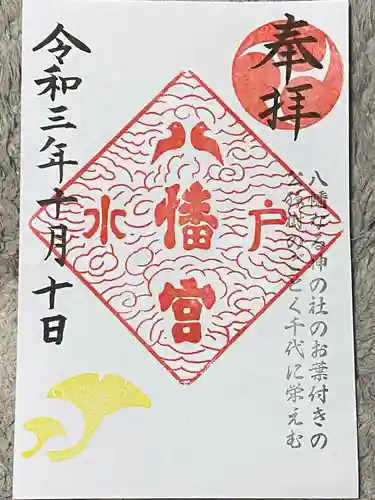 奉拝
八幡なる神の社のお葉付きの
公孫樹のごとく千代に栄えむ
水戸
八幡宮
令和三年十月十日